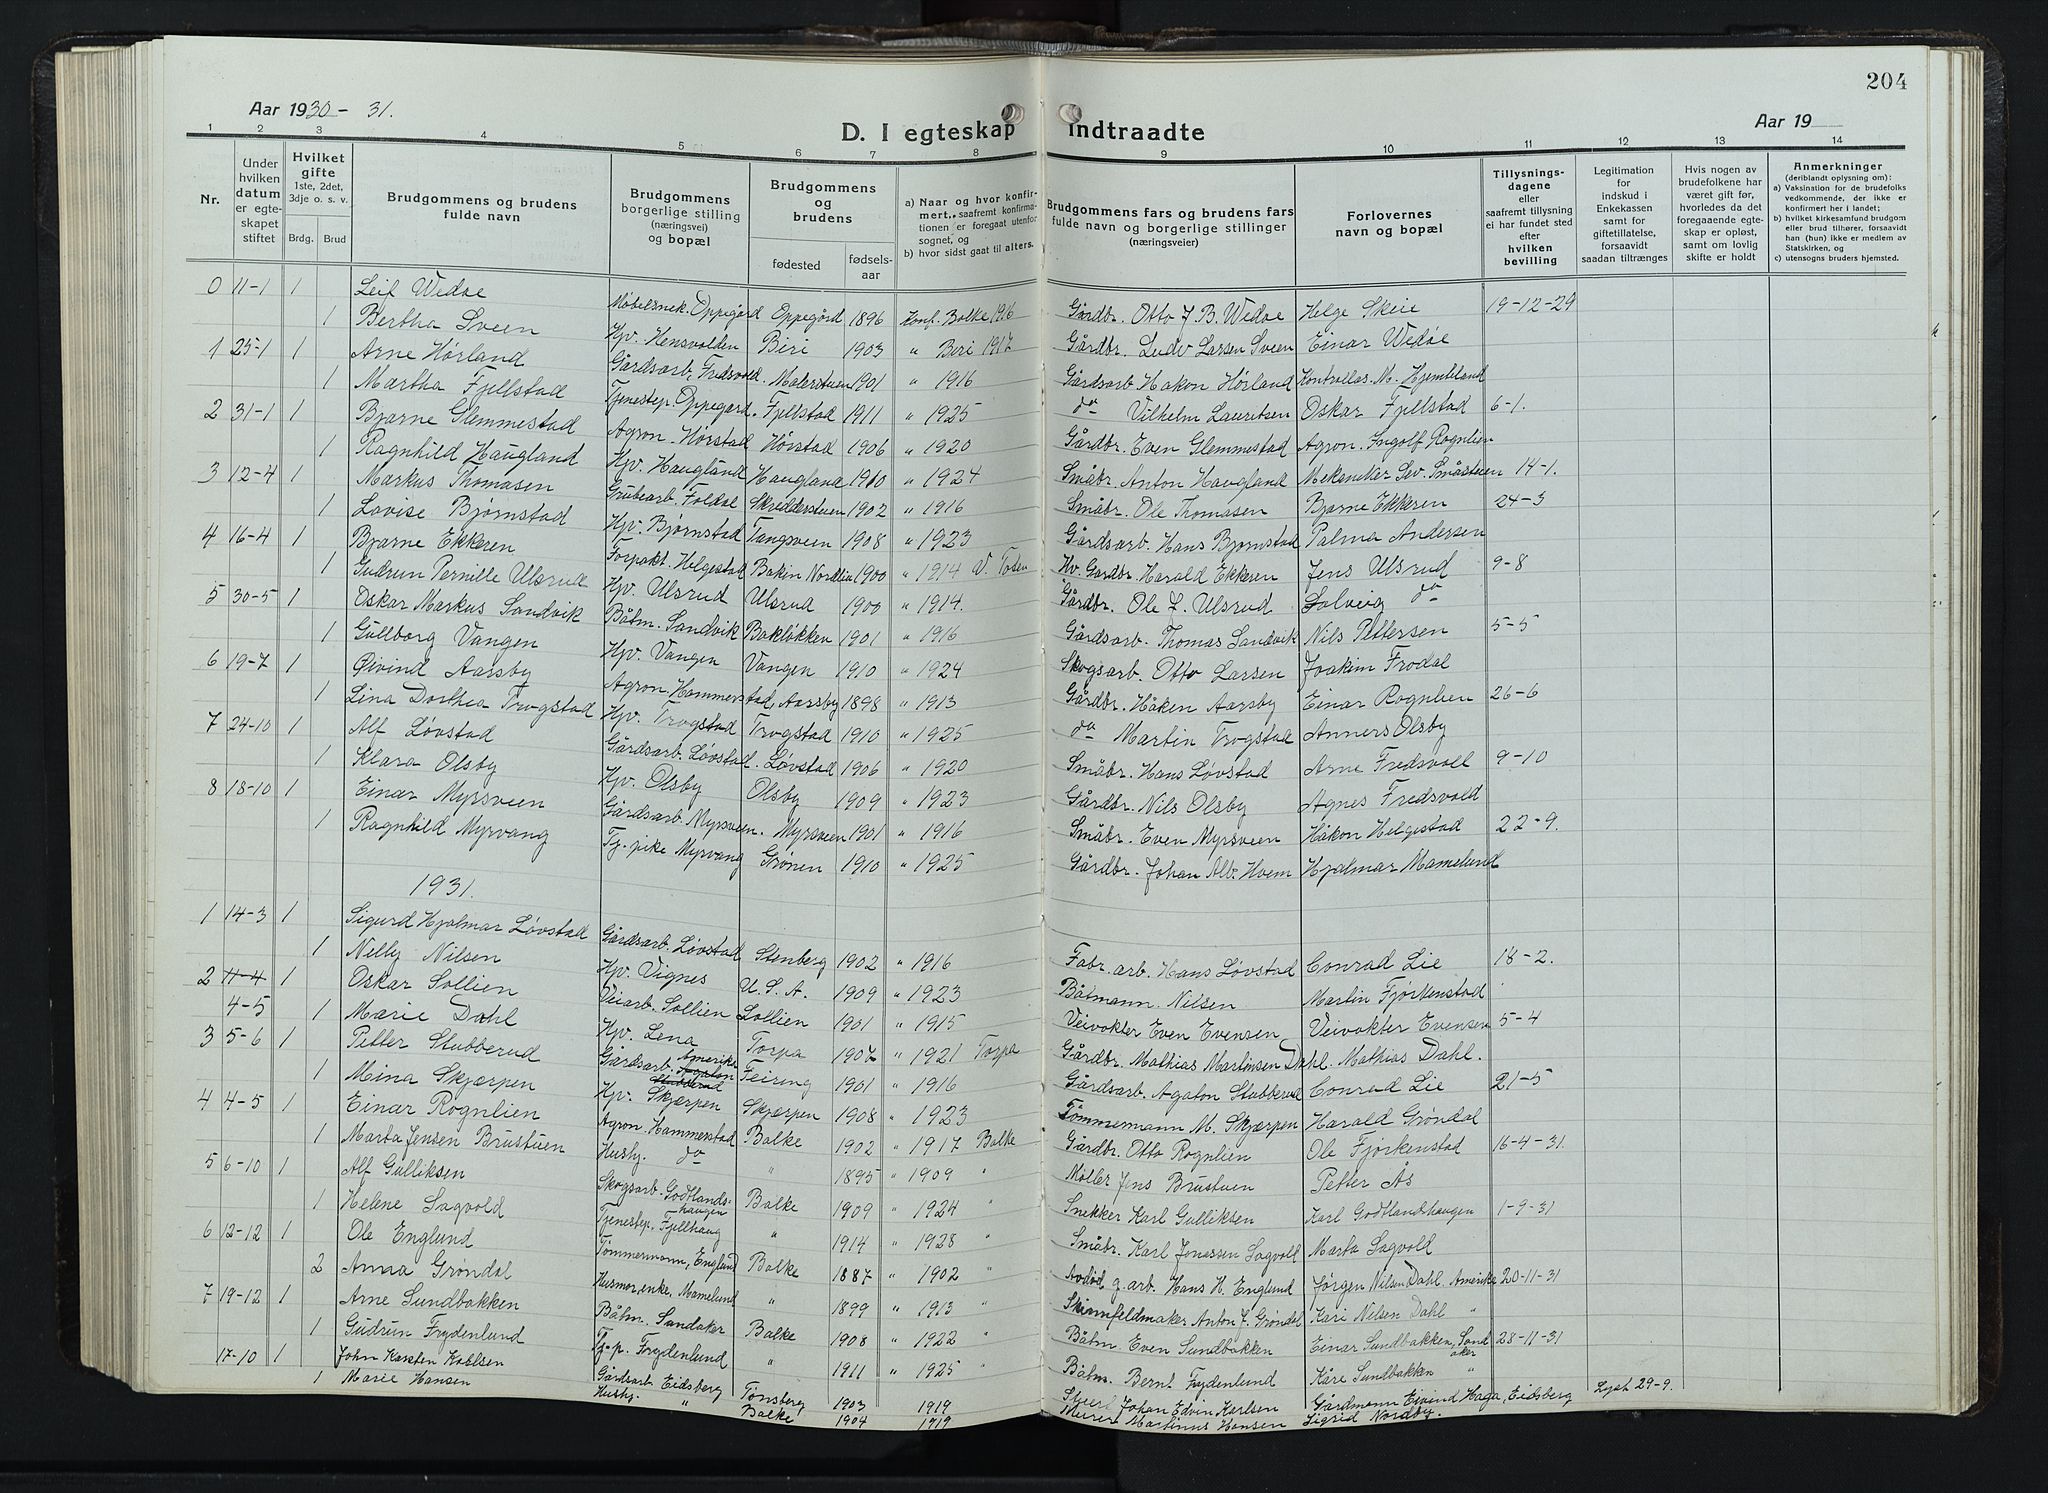 204
Aar 1930 - 31.
Aar 19
D. I egteskap indtraadte
1 2 3 4 5 6 7 8 9 10 11 12 13 14
Nr.
Under hvilken datum er egteskapet stiftet
Hvilket gifte 1ste, 2det, 3dje o. s. v.
Brdg. Brud
Brudgommens og brudens fulde navn
Brudgommens borgerlige stilling (næringsvei) og bopæl
Brudgommens og brudens
fødested fødselsaar
a) Naar og hvor konfirmert, saafremt konfirmationen er foregaat utenfor sognet, og
b) hvor sidst gaat til alters.
Brudgommens fars og brudens fars fulde navn og borgerlige stillinger (næringsveier)
Forlovernes navn og bopæl
Tillysningsdagene eller saafremt tillysning ei har fundet sted efter hvilken bevilling
Legitimation for indskud i Enkekassen samt for giftetillatelse, forsaavidt saadan tiltrænges
Hvis nogen av brudefolkene har været gift før, hvorledes da det foregaaende egteskap er opløst, samt om lovlig skifte er holdt
Anmerkninger (deriblandt oplysning om):
a) Vaksination for de brudefolks vedkommende, der ikke er konfirmert her i landet;
b) hvilket kirkesamfund brudgom eller brud tilhører, forsaavidt han (hun) ikke er medlem av Statskirken, og
c) utensogns bruders hjemsted.
0 11-1 1 Leif Wedøe Møbelsnek. Oppegård Oppegård 1896 Konf. Balke 1916 Gårdbr. Otto J. B. Wedøe Helge Skeie 19-12-29
1 Bertha Sveen Hpv. Hensvolden Biri 1903 " Biri 1917 Gårdbr. Ludv Larsen Sveen Einar Wedøe
1 25-1 1 Arne Hørland Gårdsarb. Fredsvold. Malerstuen 1901 " 1916 Gårdsarb Hakon Hørland Kontrollas. M. Hjembland
1 Martha Fjellstad Tjenestep. Oppegård. Fjellstad 1911 " 1925 do Vilhelm Lauritsen Oskar Fjellstad 6-1.
2 31-1 1 Bjarne Glemmestad Agron. Hørstad Hørstad 1906 " 1920 Gårdbr. Even Glemmestad Agron. Ingolf Rognlien
1 Ragnhild Haugland Hpv. Haugland Haugland 1910 " 1924 Småbr. Anton Haugland Mekaniker Sev. Småstuen 14-1.
3 12-4 1 Markus Thomasen Grubearb. Foldal Skredderstuen 1902 " 1916 Småbr. Ole Thomasen Bjarne Ekkeren 24-3
1 Lovise Bjørnstad Hpv. Bjørnstad Tangsveen 1908 " 1923 Gårdsarb. Hans Bjørnstad Palma Andersen
4 16-4 1 Bjarne Ekkeren Forpakt. Helgestad Bakin Nordlien 1900 " 1914 V. Toten Hv. Gardbr. Harald Ekkeren Jens Ulsrud 9-8
1 Gudrun Pernille Ulsrud Hpv. Ulsrud Ulsrud 1900 " 1914. Gårdbr. Ole J. Ulsrud Solveig do
5 30-5 1 Oskar Markus Sandvik Båtm. Sandvik Bakløkken 1901 " 1916 Gårdsarb. Thomas Sandvik Nils Pettersen 5-5
1 Gullborg Vangen Hpv. Vangen Vangen 1910 " 1924 Skogsarb. Otto Larsen Joakim Frodal
6 19-7 1 Øivind Aarsby Agron. Hammerstad, Aarsby 1898 " 1913 Gårdbr. Håken Aarsby Einar Rognlien 26-6
1 Lina Dorthea Trogstad Hpv. Trogstad Trogstad 1910 " 1925 do Martin Trogstad Anners Olsby
7 24-10 1 Alf Løvstad Gårdsarb. Løvstad. Løvstad 1906 " 1920 Småbr. Hans Løvstad Arne Fredsvoll 9-10
1 Klara Olsby Hpv. Olsby Olsby 1909 " 1923 Gårdbr. Nils Olsby Agnes Fredsvold
8 18-10 1 Einar Myrsveen Gårdsarb. Myrsveen. Myrsveen 1901 " 1916 Småbr. Even Myrsveen Håkon Helgestad 22-9.
1 Ragnhild Myrvang Tj.-pike Myrvang Grønen 1910 " 1925 Gårdbr. Johan Alb. Hvem Hjalmar Mamelund
1931.
1 14-3 1 Sigurd Hjalmar Løvstad Gårdsarb. Løvstad Stenberg 1902 " 1916 Fabr. arb. Hans Løvstad Conrad Lie 18-2.
1 Nelly Nilsen Hpv. Vignes U. S. A. 1909 " 1923 Båtmann. Nilsen Martin Fjørkenstad
2 11-4 1 Oskar Sollien Veiarb. Sollien Sollien 1901 " 1915 Veivokter Even Evensen Veivokter Evensen 5-4
4-5 1 Marie Dahl Hpv. Lena Torpa 1907 " 1921 Torpa Gårdbr. Mathias Martinsen Dahl. Mathias Dahl.
3 5-6 1 Petter Stubberud Gårdsarb. Amerika Agaton Stubberud Feiring 1901 " 1916 Gårdsarb. Agaton Stubberud Conrad Lie 21-5
1 Mina Skjærpen Hpv. Skjærpen Skjærpen 1908 " 1923 Tømmermann M. Skjærpen Harald Grøndal
4 4-5 1 Einar Rognlien Agron. Hammerstad Balke 1902 " 1917 Balke Gårdbr. Otto Rognlien Ole Fjørkenstad 16-4-31.
1 Marta Jensen Brustuen Hushj. do " 1895 " 1909 " Møller Jens Brustuen Petter Ås
5 6-10 1 Alf Gulliksen Skogsarb. Godtlandshaugen Balke 1909 " 1924 " Snekker Karl Gulliksen Karl Godtlandshaugen 1-9-31
1 Helene Sagvold Tjenestep. Fjellhaug " 1914 " 1928 " Småbr. Karl Jonassen Sagvold Marta Sagvold
6 12-12 1 Ole Englund Tømmermann, Englund Balke 1887 " 1902 " Avdød g. arb. Hans H. Englund Jørgen Nilsen Dahl, Amerika 20-11-31
2 Anna Grøndal Husmor, enke, Mamelund " 1899 " 1913 " Skinnfeldmaker Anton J. Grøndal Kari Nilsen Dahl "
7 19-12 1 Arne Sundbakken Båtm. Sandaker Balke 1908 " 1922 " Båtm. Even Sundbakken Einar Sundbakken, Sandåker 28-11-31
1 Gudrun Frydenlund Tj.-p. Frydenlund " 1911 " 1925 " Båtm. Bernt Frydenlund Kåre Sundbakken "
17-10 1 John Karsten Karlsen Gårdsarb Eidsberg Tønsberg 1903 1919 Johan Edvin Karlsen Gårdmann Eivind Haga, Eidsberg Lyst 29-9.
1 Marie Hansen Hushj. " Balke 1904 1919 Murer Martinus Hansen Sigrid Nordby.